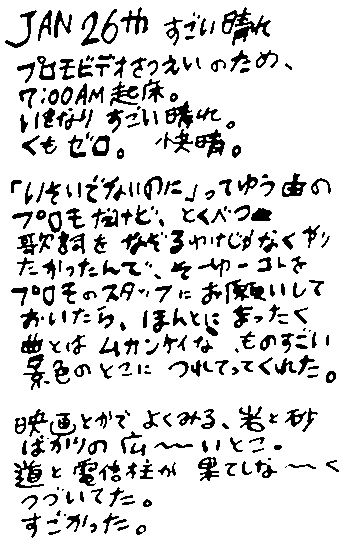 JAN 26th すごい晴れ
プロモビデオさつえいのため、
7:00AM起床。
いきなりすごい晴れ。
くもゼロ。 快晴。
「いそいでないのに」ってゆう曲の
プロモだけど、とくべつ
歌詞をなぞるわけじゃなくやり
たかったんで、そーゆーコトを
プロモのスタッフにお願いして
おいたら、ほんとにまったく
曲とはムカンケイな ものすごい
景色のとこに つれてってくれた。
映画とかでよくみる、岩と砂
ばかりの広〜〜いとこ。
道と電信柱が果てしな〜〜く
つづいてた。
すごかった。